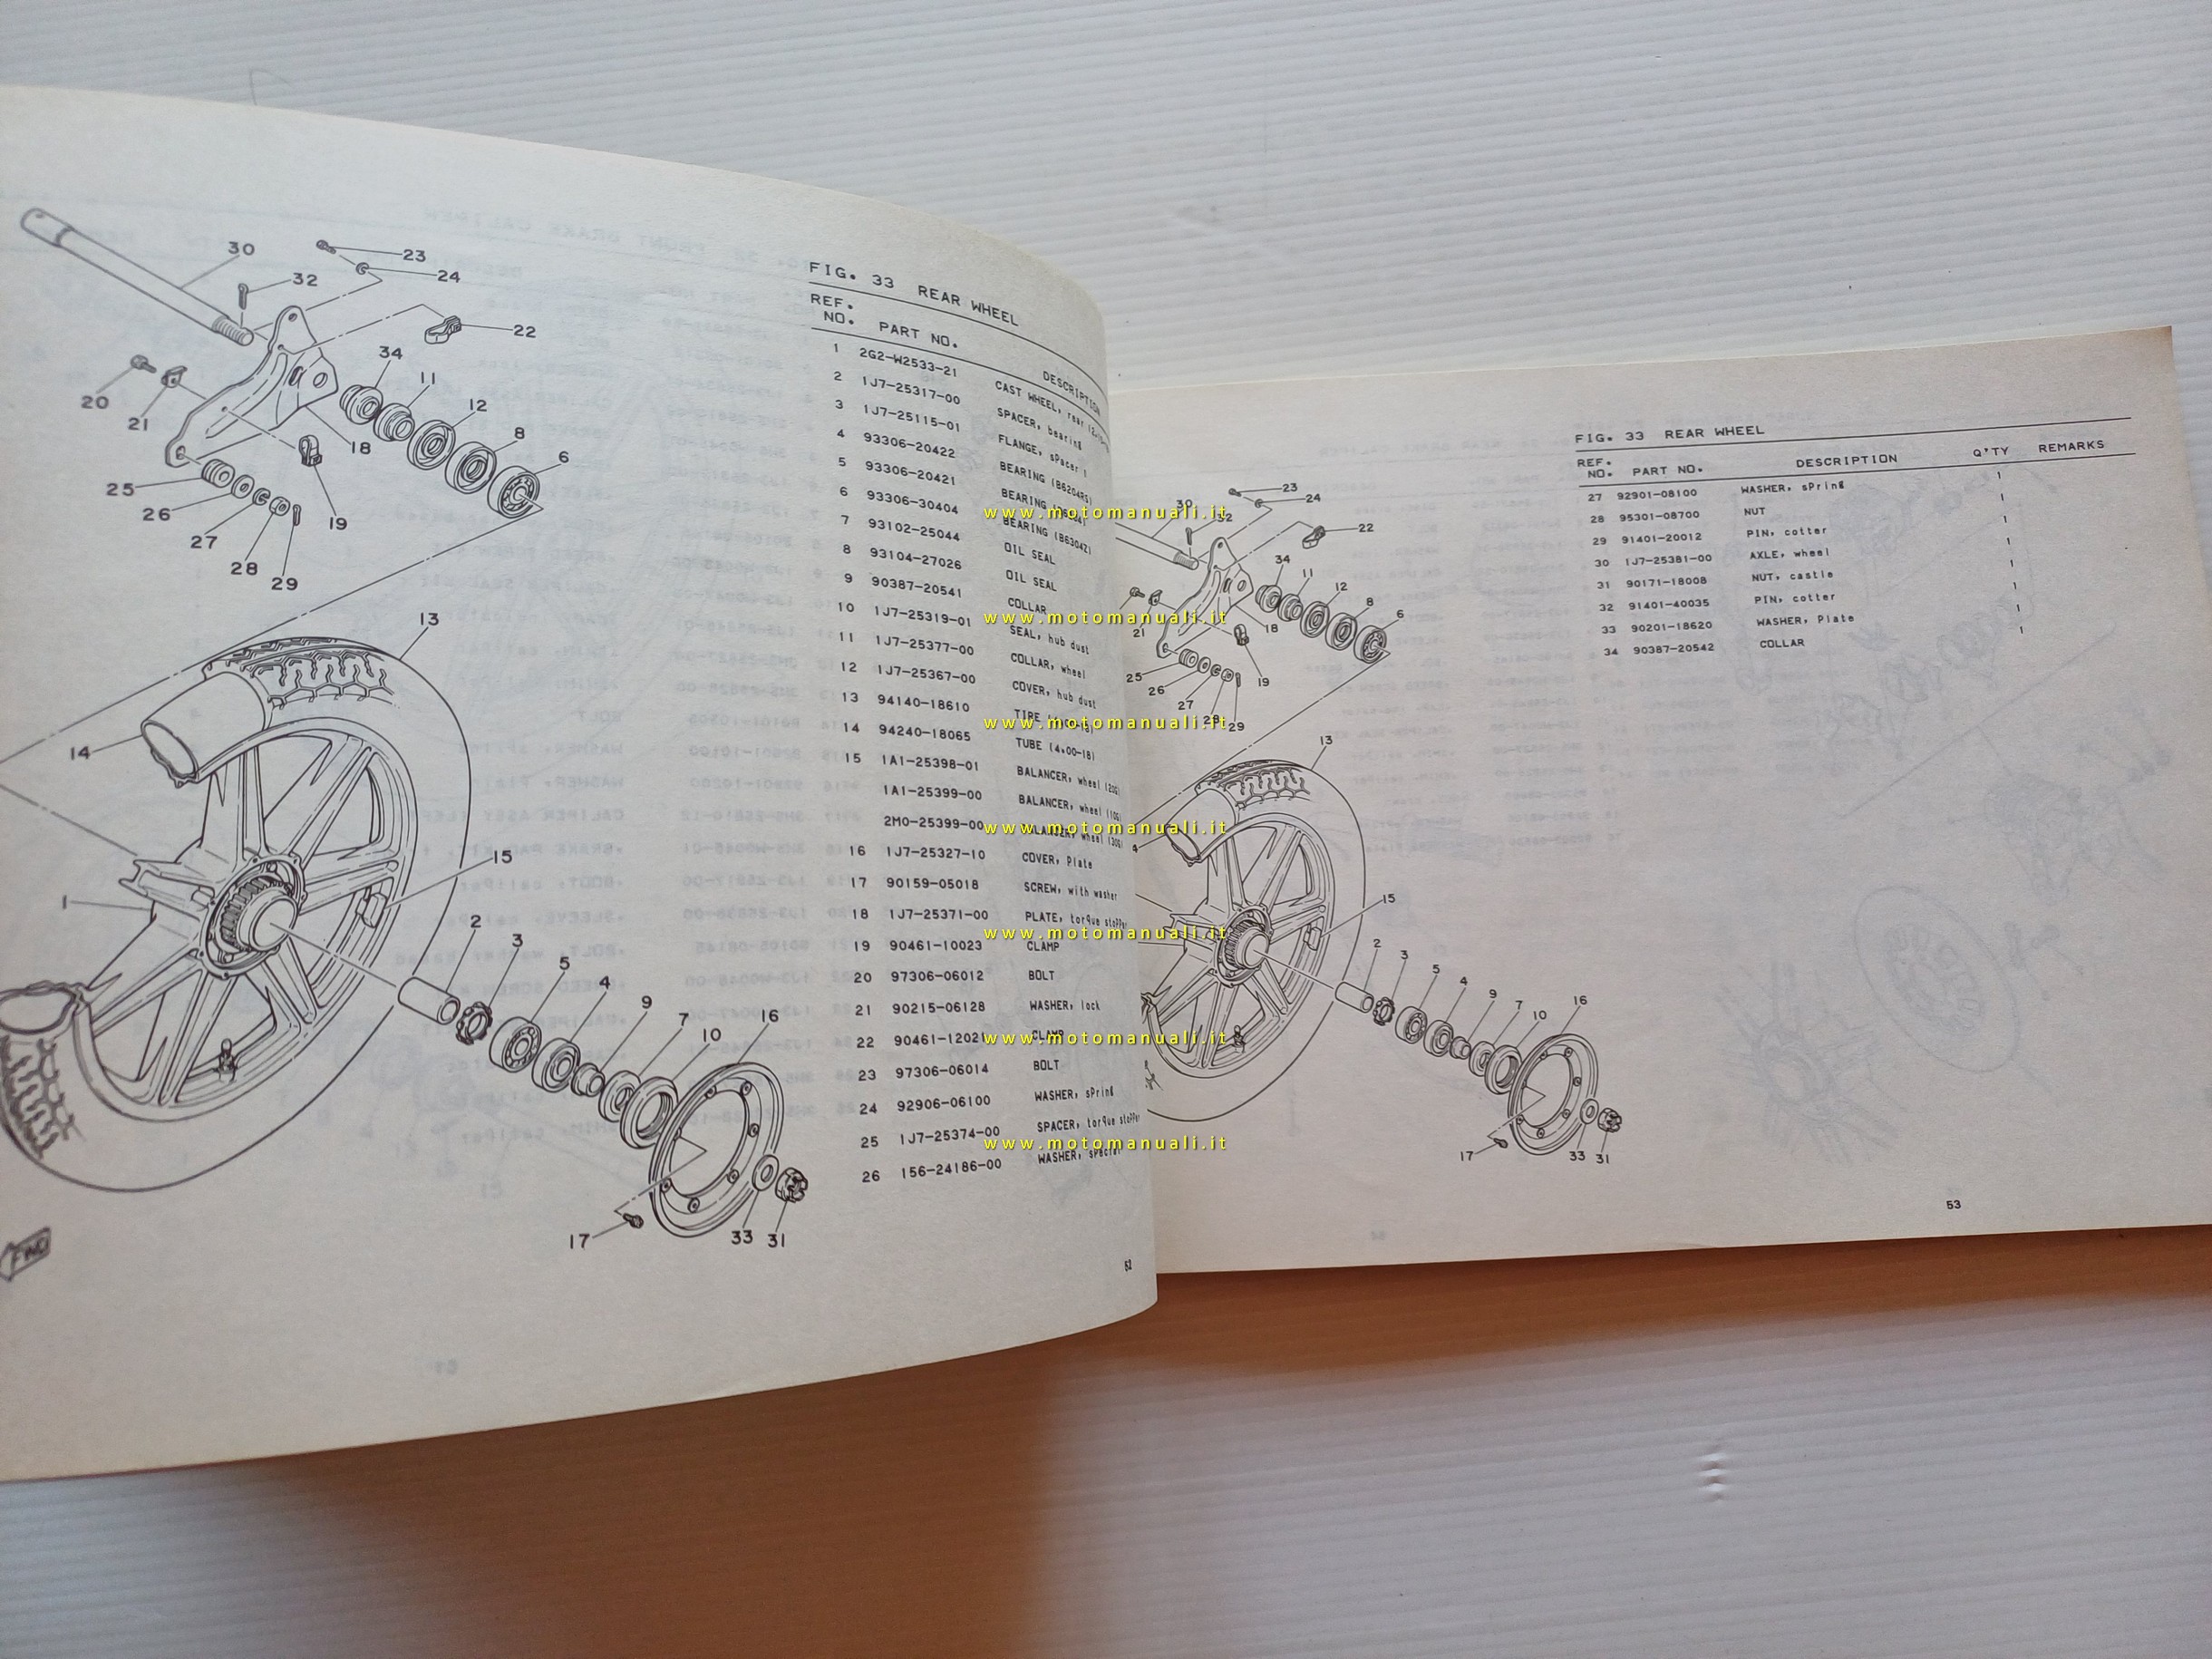 FIG. 33 REAR WHEEL
REF. NO. PART NO. DESCRIPTION
1 2G2-W2533-21 CAST WHEEL, rear
2 1J7-25317-00 SPACER, bearing
3 1J7-25115-01 FLANGE, spacer 1
4 93306-20422 BEARING (B6204RS)
5 93306-20421 BEARING
6 93306-30404 BEARING (B6304Z)
7 93102-25044 OIL SEAL
8 93104-27026 OIL SEAL
9 90387-20541 COLLAR
10 1J7-25319-01 SEAL, hub dust
11 1J7-25377-00 COLLAR, wheel
12 1J7-25367-00 COVER, hub dust
13 94140-18610 TIRE
14 94240-18065 TUBE (4.00-18)
15 1A1-25398-01 BALANCER, wheel (20G)
1A1-25399-00 BALANCER, wheel (10G)
2M0-25399-00 BALANCER, wheel (30G)
16 1J7-25327-10 COVER, plate
17 90159-05018 SCREW, with washer
18 1J7-25371-00 PLATE, torque stopper
19 90461-10023 CLAMP
20 97306-06012 BOLT
21 90215-06128 WASHER, lock
22 90461-12021 CLAMP
23 97306-06014 BOLT
24 92906-06100 WASHER, spring
25 1J7-25374-00 SPACER, torque stopper
26 156-24186-00 WASHER, special
52
30
23
32
24
22
34
11
12
8
6
20
21
18
25
26
27
28
29
19
13
14
15
1
2
3
5
4
9
7
10
16
17
33
31
FWD
www.motomanuali.it
www.motomanuali.it
www.motomanuali.it
www.motomanuali.it
www.motomanuali.it
www.motomanuali.it
www.motomanuali.it
FIG. 33 REAR WHEEL
REF. NO. PART NO. DESCRIPTION Q'TY REMARKS
27 92901-08100 WASHER, spring 1
28 95301-08700 NUT 1
29 91401-20012 PIN, cotter 1
30 1J7-25381-00 AXLE, wheel 1
31 90171-18008 NUT, castle 1
32 91401-40035 PIN, cotter 1
33 90201-18620 WASHER, plate 1
34 90387-20542 COLLAR 1
53
30
23
24
32
22
34
11
12
8
6
21
18
25
26
27
28
29
19
13
15
2
3
5
4
9
7
10
16
17
33
31